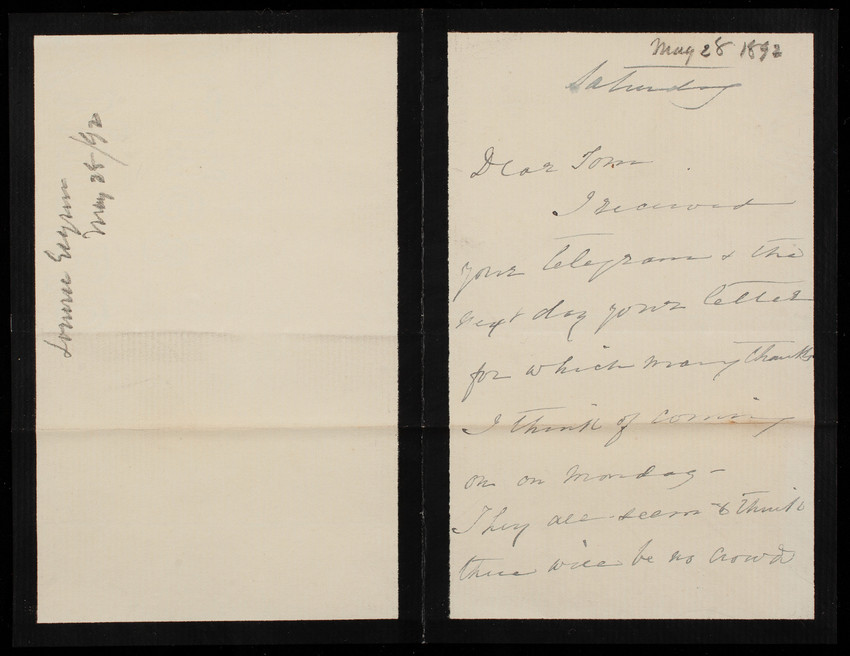 May 28/92
May 28 1892
Saturday
Dear Tom
I received
your telegram & the
next day your letter
for which many thanks
I think of coming
on on Monday -
They all seem to think
there will be no crowd